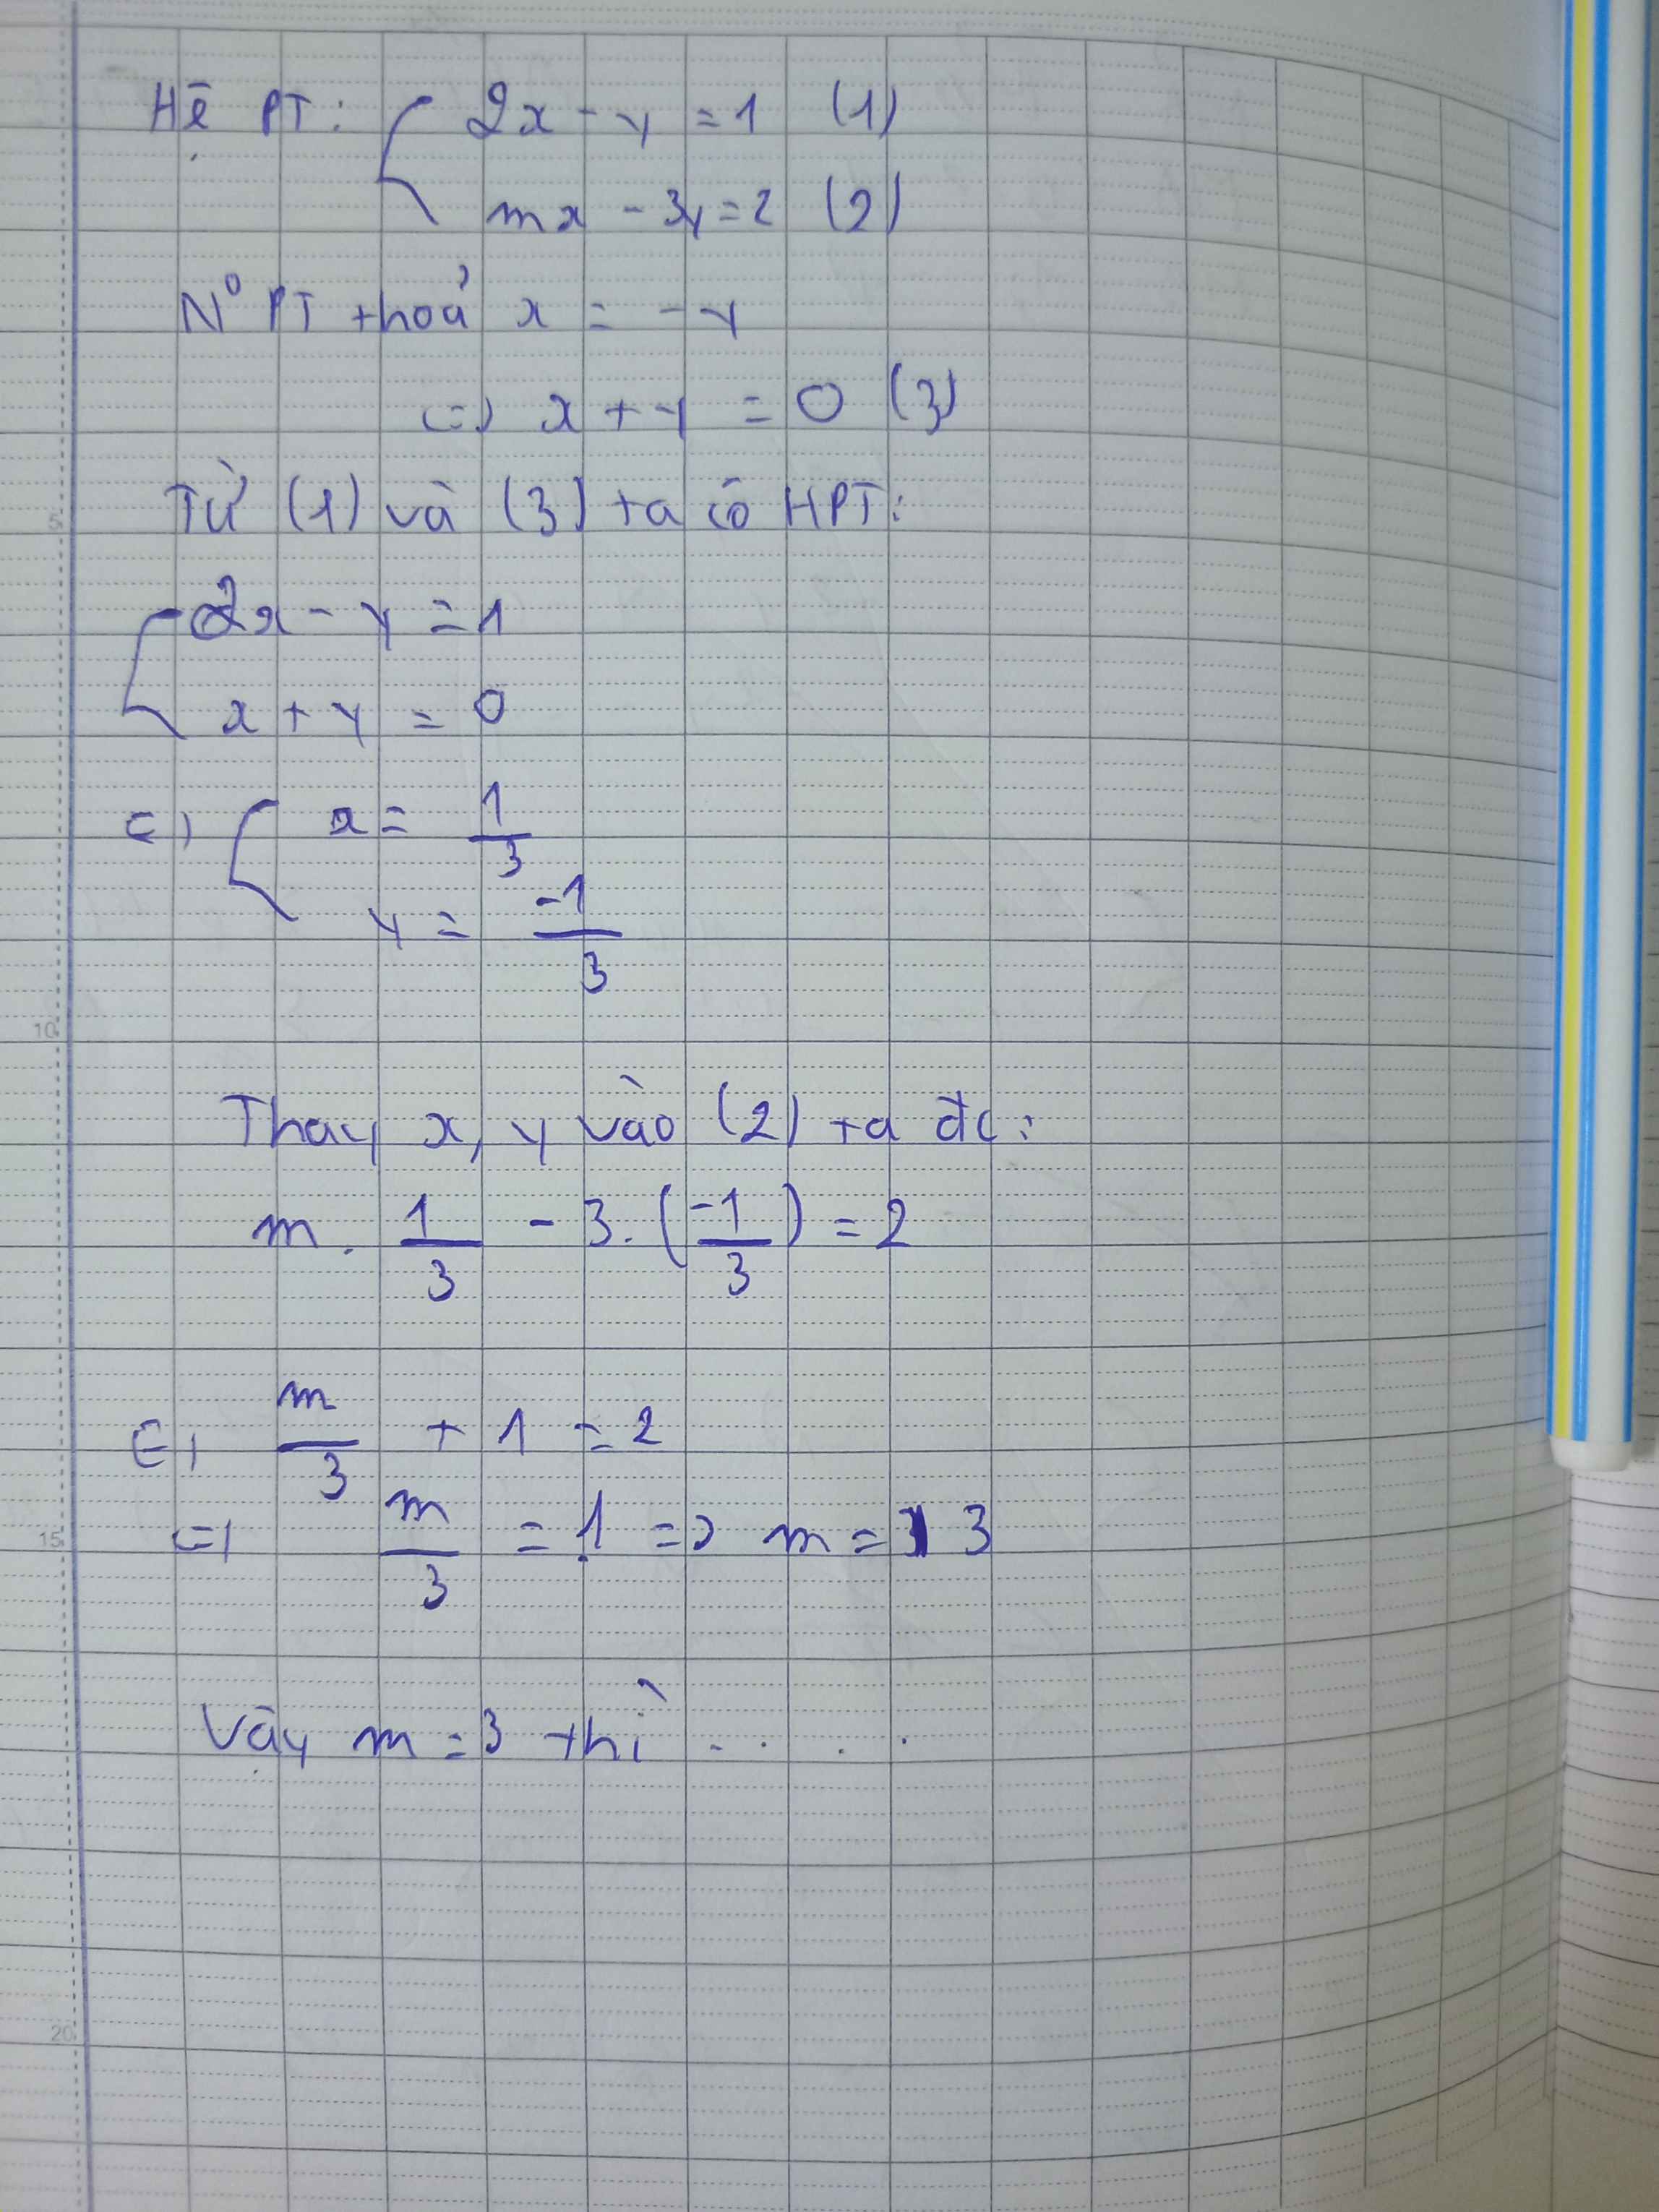 Hệ PT: { 2x - y = 1 (1)
mx - 3y = 2 (2)
N° PT thoả x = -y
<=> x + y = 0 (3)
5
Từ (1) và (3) ta có HPT:
{ 2x - y = 1
x + y = 0
<=> { x = 1/3
y = -1/3
10
Thay x, y vào (2) ta đc:
m . 1/3 - 3.(-1/3) = 2
<=> m/3 + 1 = 2
15
<=> m/3 = 1 => m = 3
Vậy m = 3 thì . . . .
20